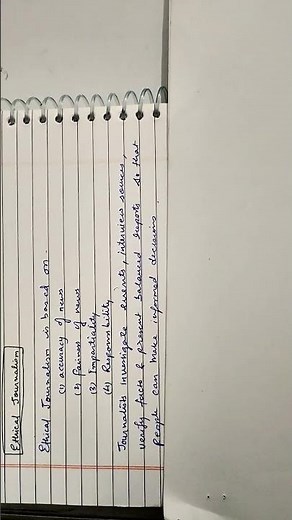 Ethical Journalism
Ethical Journalism is based on.
(1) accuracy of news
(2) fairness of news
(3) Impartiality
(4) Responsibility
Journalists investigate events, interview sources,
verify facts & present balanced reports so that
people can make informed decisions